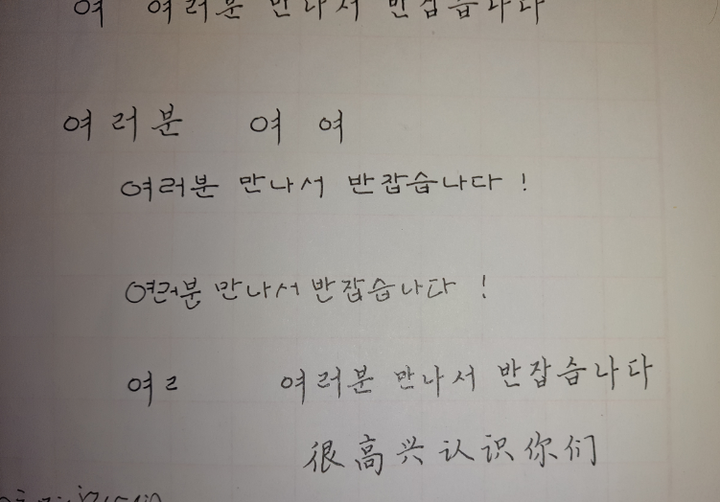 여 여러분 만나서 반잡습나다
여러분 여 여
여러분 만나서 반잡습나다 !
여러분 만나서 반잡습나다 !
여ㄹ 여러분 만나서 반잡습나다
很高兴认识你们